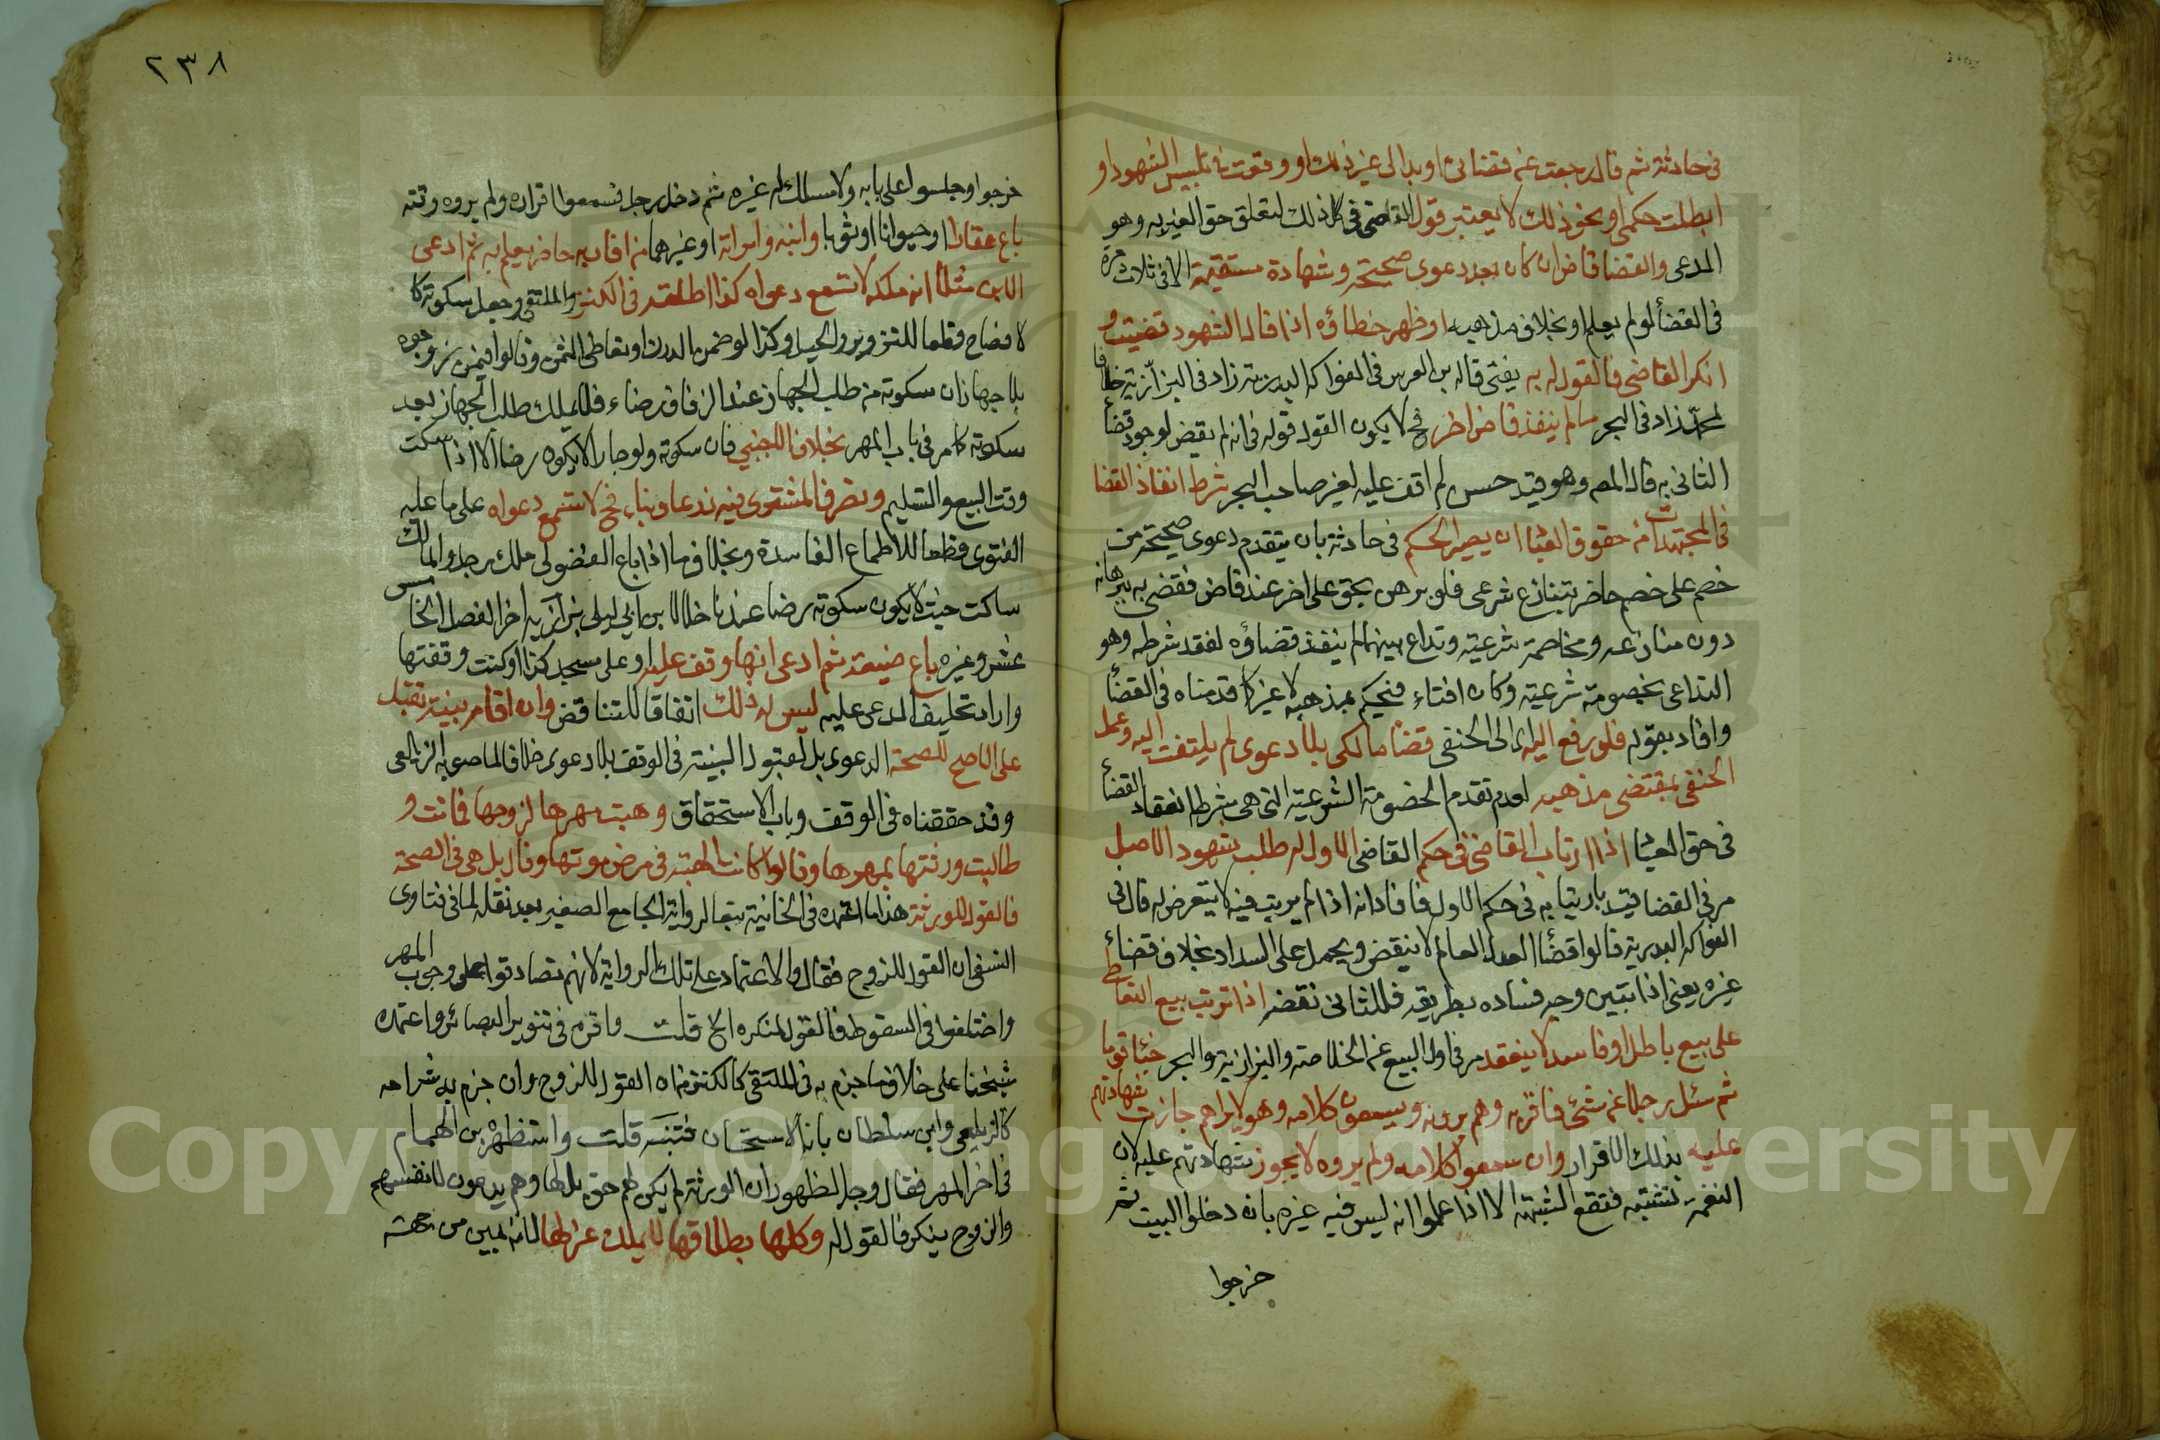 في حادثة ثم قال رجعت عن قضائي او بدا لي غير ذلك او وقعت في تلبيس الشهود او
ابطلت حكمي او نحو ذلك لا يعتبر قول القاضي في كل ذلك لتعلق حق الغير به وهو
المدعي والقضا قاض ان كان بعد دعوى صحيحة وشهادة مستقيمة الا في ثلاث مرة
في القضأ لو لم يعلم او بخلاف مذهبه او ظهر خطاؤه اذا قال الشهود قضيت و
انكر القاضي فالقول له به يفتى قاله بن الغرس في الفواكه البدرية زاد في البزازية خلافا
لمحمد زاد في البحر ما لم ينفذ قاض اخر فح لا يكون القول قوله في انه لم يقض لوجود قضأ
الثاني به قال المص وهو قيد حسن لم اقف عليه لغير صاحب البحر شرط انفاذ القضا
في المجتهدات من حقوق العباد ان يصير الحكم في حادثة بان يتقدم دعوى صحيحة من
خصم على خصم حاضر بتنازع شرعي فلو برهن بحق على اخر عند قاض فقضى به ببرهانه
دون منازعه ومخاصمة شرعية وتداع بينهما لم ينفذ قضاؤه لفقد شرطه وهو
التداعي بخصومة شرعية وكان افتاء فيحكم بمذهبه لا غير كما قدمناه في القضأ
وافاد بقوله فلو رفع اليه اي الى الحنفي قضا مالكي بلا دعوى لم يلتفت اليه وعمل
الحنفي بمقتضى مذهبه لعدم تقدم الخصومة الشرعية التي هي شرط انعقاد القضأ
في حق العباد اذا ارتاب القاضي في حكم القاضي الاول له طلب شهود الاصل
مر في القضا قيد بارتيابه في حكم الاول فافاد انه اذا لم يرتب فيه لا يتعرض له قال في
الفواكه البدرية قالوا قضأ العدل العالم لا ينقض ويحمل على السداد بخلاف قضاء
غيره يعني اذا تبين وجه فساده بطريقه فللثاني نقضه اذا ترتب بيع التعاطي
على بيع باطل او فاسد لا ينعقد مر في اول البيع عن الخلاصة والبزازية والبحر خبأ قوما
ثم سئل رجلا عن شئ فاقر به وهم يرونه ويسمعون كلامه وهو لا يراهم جازت شهادتهم
عليه بذلك الاقرار وان سمعوا كلامه ولم يروه لا يجوز شهادتهم عليه لان
النغمة تشتبه فتقع الشبهة الا اذا علموا انه ليس فيه غيره بان دخلوا البيت ثم
خرجوا
٢٣٨
خرجوا وجلسوا على بابه ولا مسلك له غيره ثم دخل رجل فسمعوا اقراره ولم يروه وقته
باع عقارا او حيوانا او ثوبا وابنه وامراته او غيرهما من اقاربه حاضر يعلم به ثم ادعى
الابن مثلا انه ملكه لا تسمع دعواه كذا اطلقه في الكنز والملتقى وجعل سكوته كا
لافصاح قطعا للتزوير والحيل وكذا لو ضمن الدرك او تقاضى الثمن وقالوا فيمن زوجوه
بلا جهاز ان سكوته من طلب الجهاز عند الزفاف رضاء فلا يملك طلب الجهاز بعد
سكوته كما مر في باب المهر بخلاف الاجنبي فان سكوته ولو جار الا يكون رضا الا اذا سكت
وقت البيع والتسليم وتصرف المشتري فيه زرعا وبناء فح لا تسمع دعواه على ما عليه
الفتوى قطعا للاطماع الفاسدة وبخلاف ما اذا باع الفضولي ملك رجل والمالك
ساكت حيث لا يكون سكوته رضا عندنا خلافا لابن ابي ليلى بزازية اخر الفصل الخامس
عشر وغيره باع ضيعة ثم ادعى انها وقف عليه او على مسجد كذا او كنت وقفتها
واراد تحليف المدعى عليه ليس له ذلك اتفاقا للتناقض وان اقام بينة تقبل
على الاصح للصحة الدعوى بل لقبول البينة في الوقف بلا دعوى خلافا لما صوبه الزيلعي
وقد حققناه في الوقف وباب الاستحقاق وهبت مهرها لزوجها فماتت و
طالبت ورثتها بمهرها وقالوا كانت الهبة في مرض موتها وقال بل هي في الصحة
فالقول للورثة هذا ما اعتمده في الخانية تبعا لرواية الجامع الصغير بعد نقله لما في فتاوى
النسفي ان القول للزوج فقال والاعتماد على تلك الرواية لانهم تصادقوا على وجوب المهر
واختلفوا في السقوط فالقول لمنكره الخ قلت واقره في تنوير البصائر واعتمده
شيخنا على خلاف ما جزم به في الملتقى كالكنز من ان القول للزوج وان جزم به شراحه
كالزيلعي وابن سلطان بانه الاستحسان فتنبه قلت واستظهره بن الهمام
في اخر المهر فقال وجه الظهور ان الورثة لم يكن لهم حق بل لها وهم يدعون لانفسهم
والزوج ينكر فالقول له وكلها بطلاقها لا يملك عزلها لانه يمين من جهته